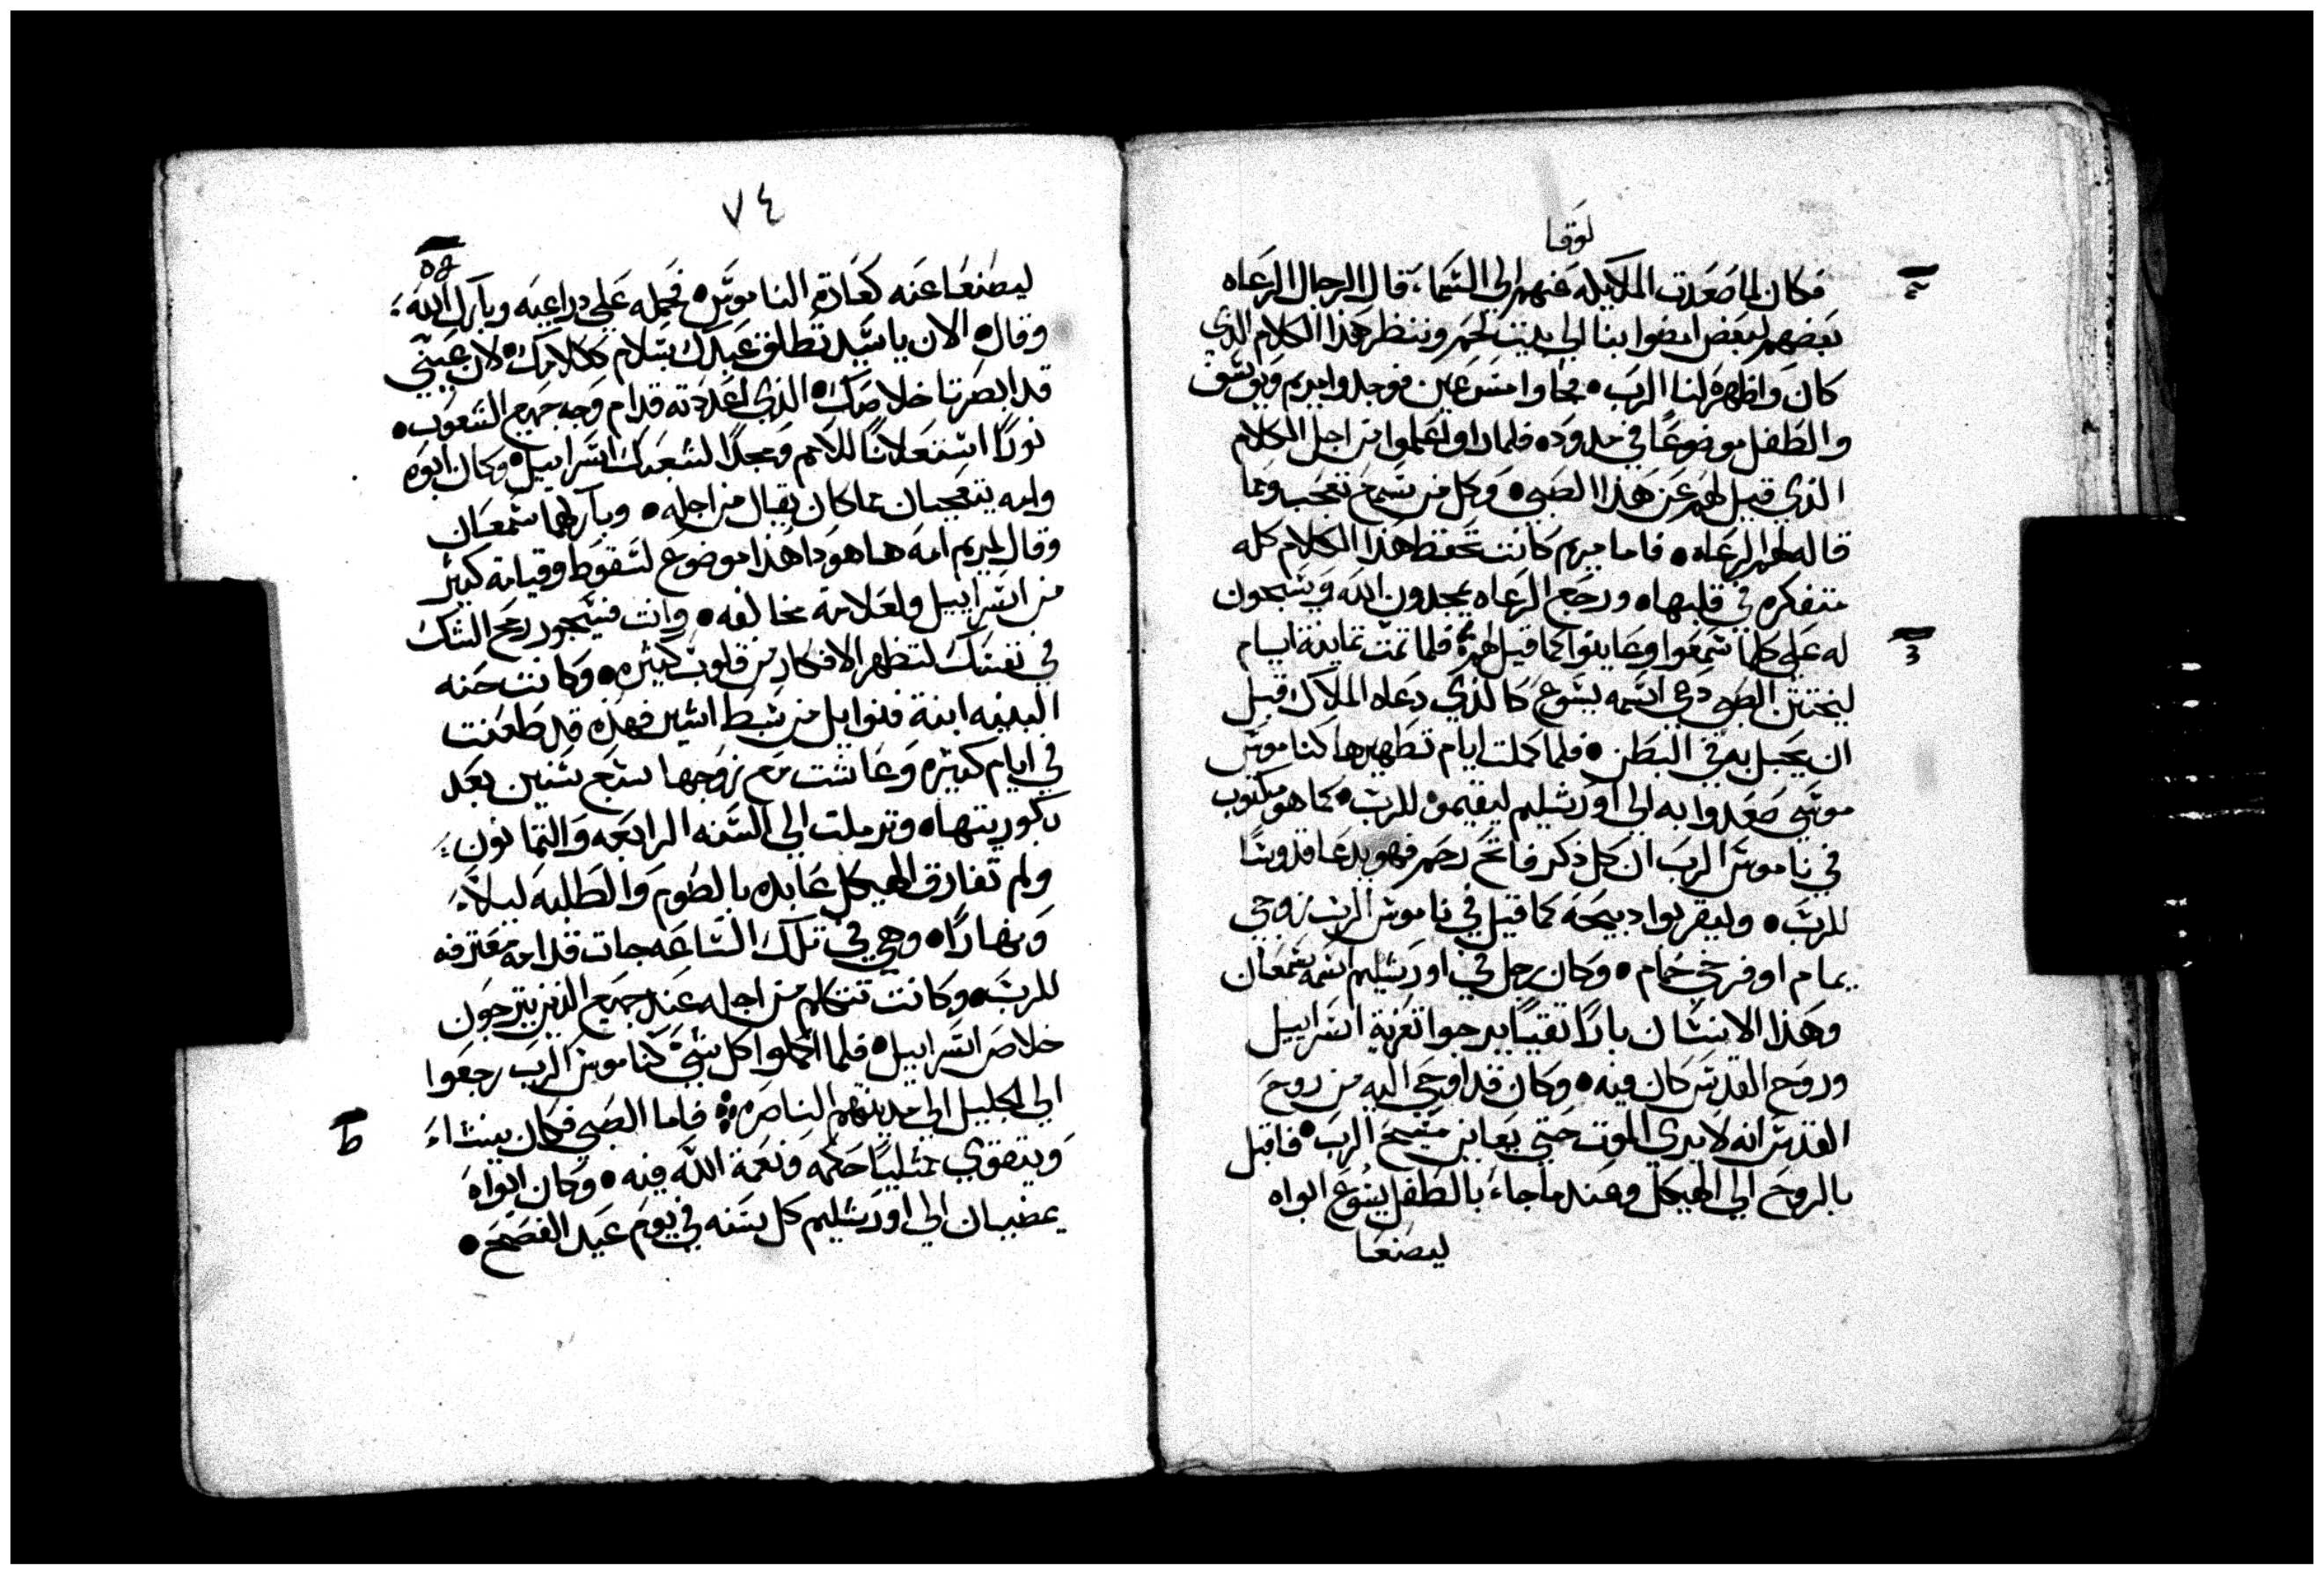 لوقا
فكان لما صعدت الملايكه عنهم الي السماء، قال الرجال الرعاه
بعضهم لبعض امضوا بنا الي بيت لحم وننظر هذا الكلام الدي
كان واظهره لنا الرب • فجاوا مسرعين فوجدوا مريم ويوسف
والطفل موضوعًا في مدوده فلما راوا علموا من اجل الكلام
الذي قيل لهم عن هذا الصبي • وكل من سمع تعجب ومما
قاله لهم الرعاه • فاما مريم كانت تحفظ هذا الكلام كله
متفكره في قلبها • ورجع الرعاه يمجدون الله ويسبحون
له علي كلما سمعوا وعاينوا كما قيل لهم فلما تمت ثمانية ايام
ليختتن الصبي دعي اسمه يسوع كالذي دعاه الملاك قبل
ان يحبل به في البطن • فلما كملت ايام تطهيرها كناموس
موسي صعدوا به الي اورشليم ليقيموه للرب • كما هو مكتوب
في ناموس الرب ان كل ذكر فاتح رحم فهو يدعا قدوسًا
للرب • وليقربوا دبيحه كما قيل في ناموس الرب زوجي
يمام او فرخي حمام • وكان رجل في اورشليم اسمه سمعان
وهذا الانسان بارًا تقيًا يرجوا تعزية اسراييل
وروح القدس كان فيه • وكان قد اوحي اليه من روح
القدس انه لا يري الموت حتي يعاين مسيح الرب • فاقبل
بالروح الي الهيكل وعند ما جاء بالطفل يسوع ابواه
ليصنعا
٧٤
ليصنعا عنه كعادة الناموس • فحمله علي دراعيه وبارك الله،
وقال • الان يا سيد تطلق عبدك بسلام ككلامك • لان عيني
قد ابصرتا خلاصك • الذي اعددته قدام وجه جميع الشعوب •
نورًا استعلانًا للامم ومجدًا لشعبك اسراييل • وكان ابوه
وامه يتعجبان مما كان يقال من اجله • وباركهما سمعان
وقال لمريم امه ها هودا هذا موضوع لسقوط وقيامة كثير
من اسراييل ولعلامة مخالفه • وانت فسيجوز رمح الشك
في نفسك لتظهر الافكار من قلوب كثيره • وكانت حنه
النبيه ابنة فنوايل من سبط اشير فهذه قد طعنت
في ايام كثيره وعاشت مع زوجها سبع سنين بعد
بكوريتها • وترملت الي السنه الرابعه والثمانون،
ولم تفارق الهيكل عابده بالصوم والطلبه ليلاً
ونهارًا • وهي في تلك الساعه جات قدامه معترفه
للرب • وكانت تتكلم من اجله عند جميع الذين يترجون
خلاص اسراييل • فلما اكملوا كل شي كناموس الرب رجعوا
الي الجليل الي مدينتهم الناصره فاما الصبي فكان ينشاء
ويتقوي ممتليًا حكمه ونعمة الله فيه • وكان ابواه
يمضيان الي اورشليم كل سنه في يوم عيد الفصح •